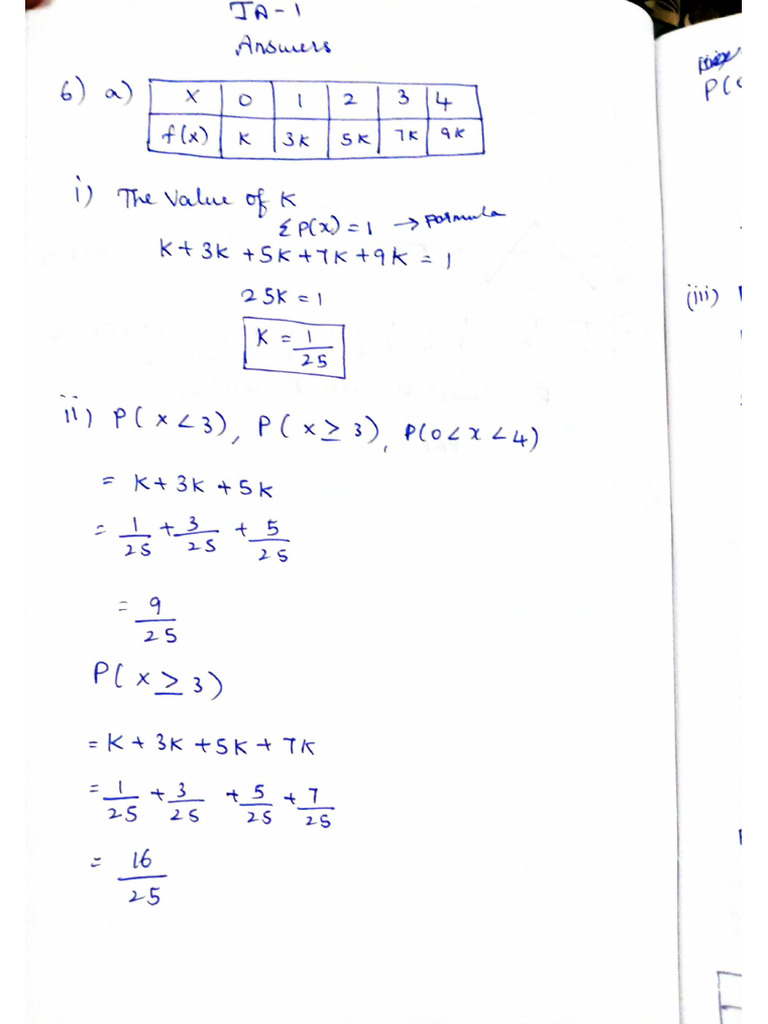 IA-1
Answers
6) a) X 0 1 2 3 4
f(x) K 3K 5K 7K 9K
i) The Value of K
ΣP(x) = 1 → Formula
K + 3K + 5K + 7K + 9K = 1
25K = 1
K = 1/25
ii) P(x < 3), P(x ≥ 3), P(0 < x < 4)
= K + 3K + 5K
= 1/25 + 3/25 + 5/25
= 9/25
P(x ≥ 3)
= K + 3K + 5K + 7K
= 1/25 + 3/25 + 5/25 + 7/25
= 16/25
P(
(iii)